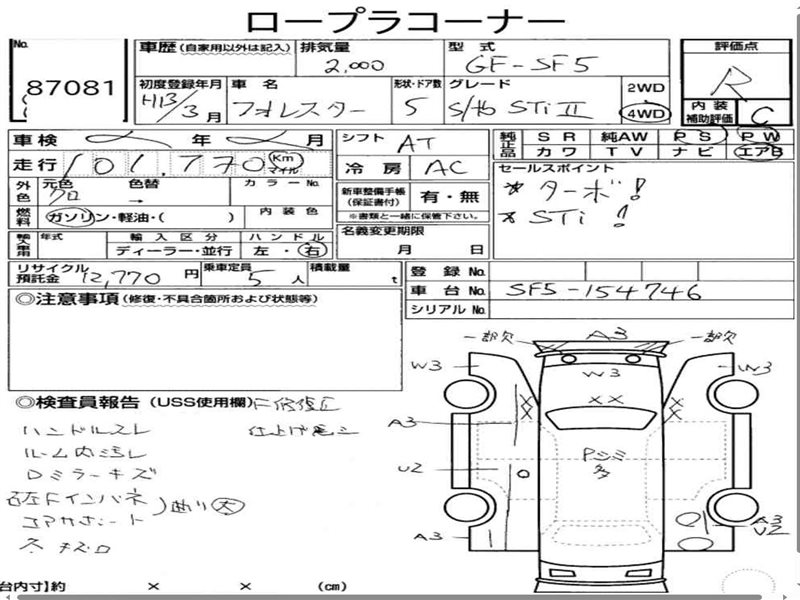 ロープラコーナー
No.
87081
車歴 (自家用以外は記入)
排気量
2,000
型式
GF-SF5
評価点
R
初度登録年月
H13/3月
車名
フォレスター
形状・ドア数
5
グレード
S/tb STi II
2WD
4WD
内装
補助評価
C
車検
年
月
シフト
AT
純正品
SR
純AW
PS
PW
カワ
TV
ナビ
エアB
走行
101,770
Km
マイル
冷房
AC
セールスポイント
* ターボ!
* STi !
外色
元色
クロ
色替
→
カラーNo.
新車整備手帳
(保証書付)
有・無
※書類と一緒に保管下さい。
燃料
ガソリン・軽油・( )
内装色
輸入車用
年式
輸入区分
ディーラー・並行
ハンドル
左・右
名義変更期限
月 日
リサイクル
預託金
12,770 円
乗車定員
5 人
積載量
t
登録No.
車台No.
SF5-154746
シリアルNo.
◎注意事項 (修復・不具合箇所および状態等)
◎検査員報告 (USS使用欄)
F修復正
ハンドルスレ
仕上げ悪シ
ルーム内汚レ
Dミラーキズ
右左Fインパネ
コアサポート
曲り 大
一部欠
A3
一部欠
W3
W3
W3
XX
A3
U2
Pシミ
多
A3
A3
U2
台内寸】約 × × (cm)